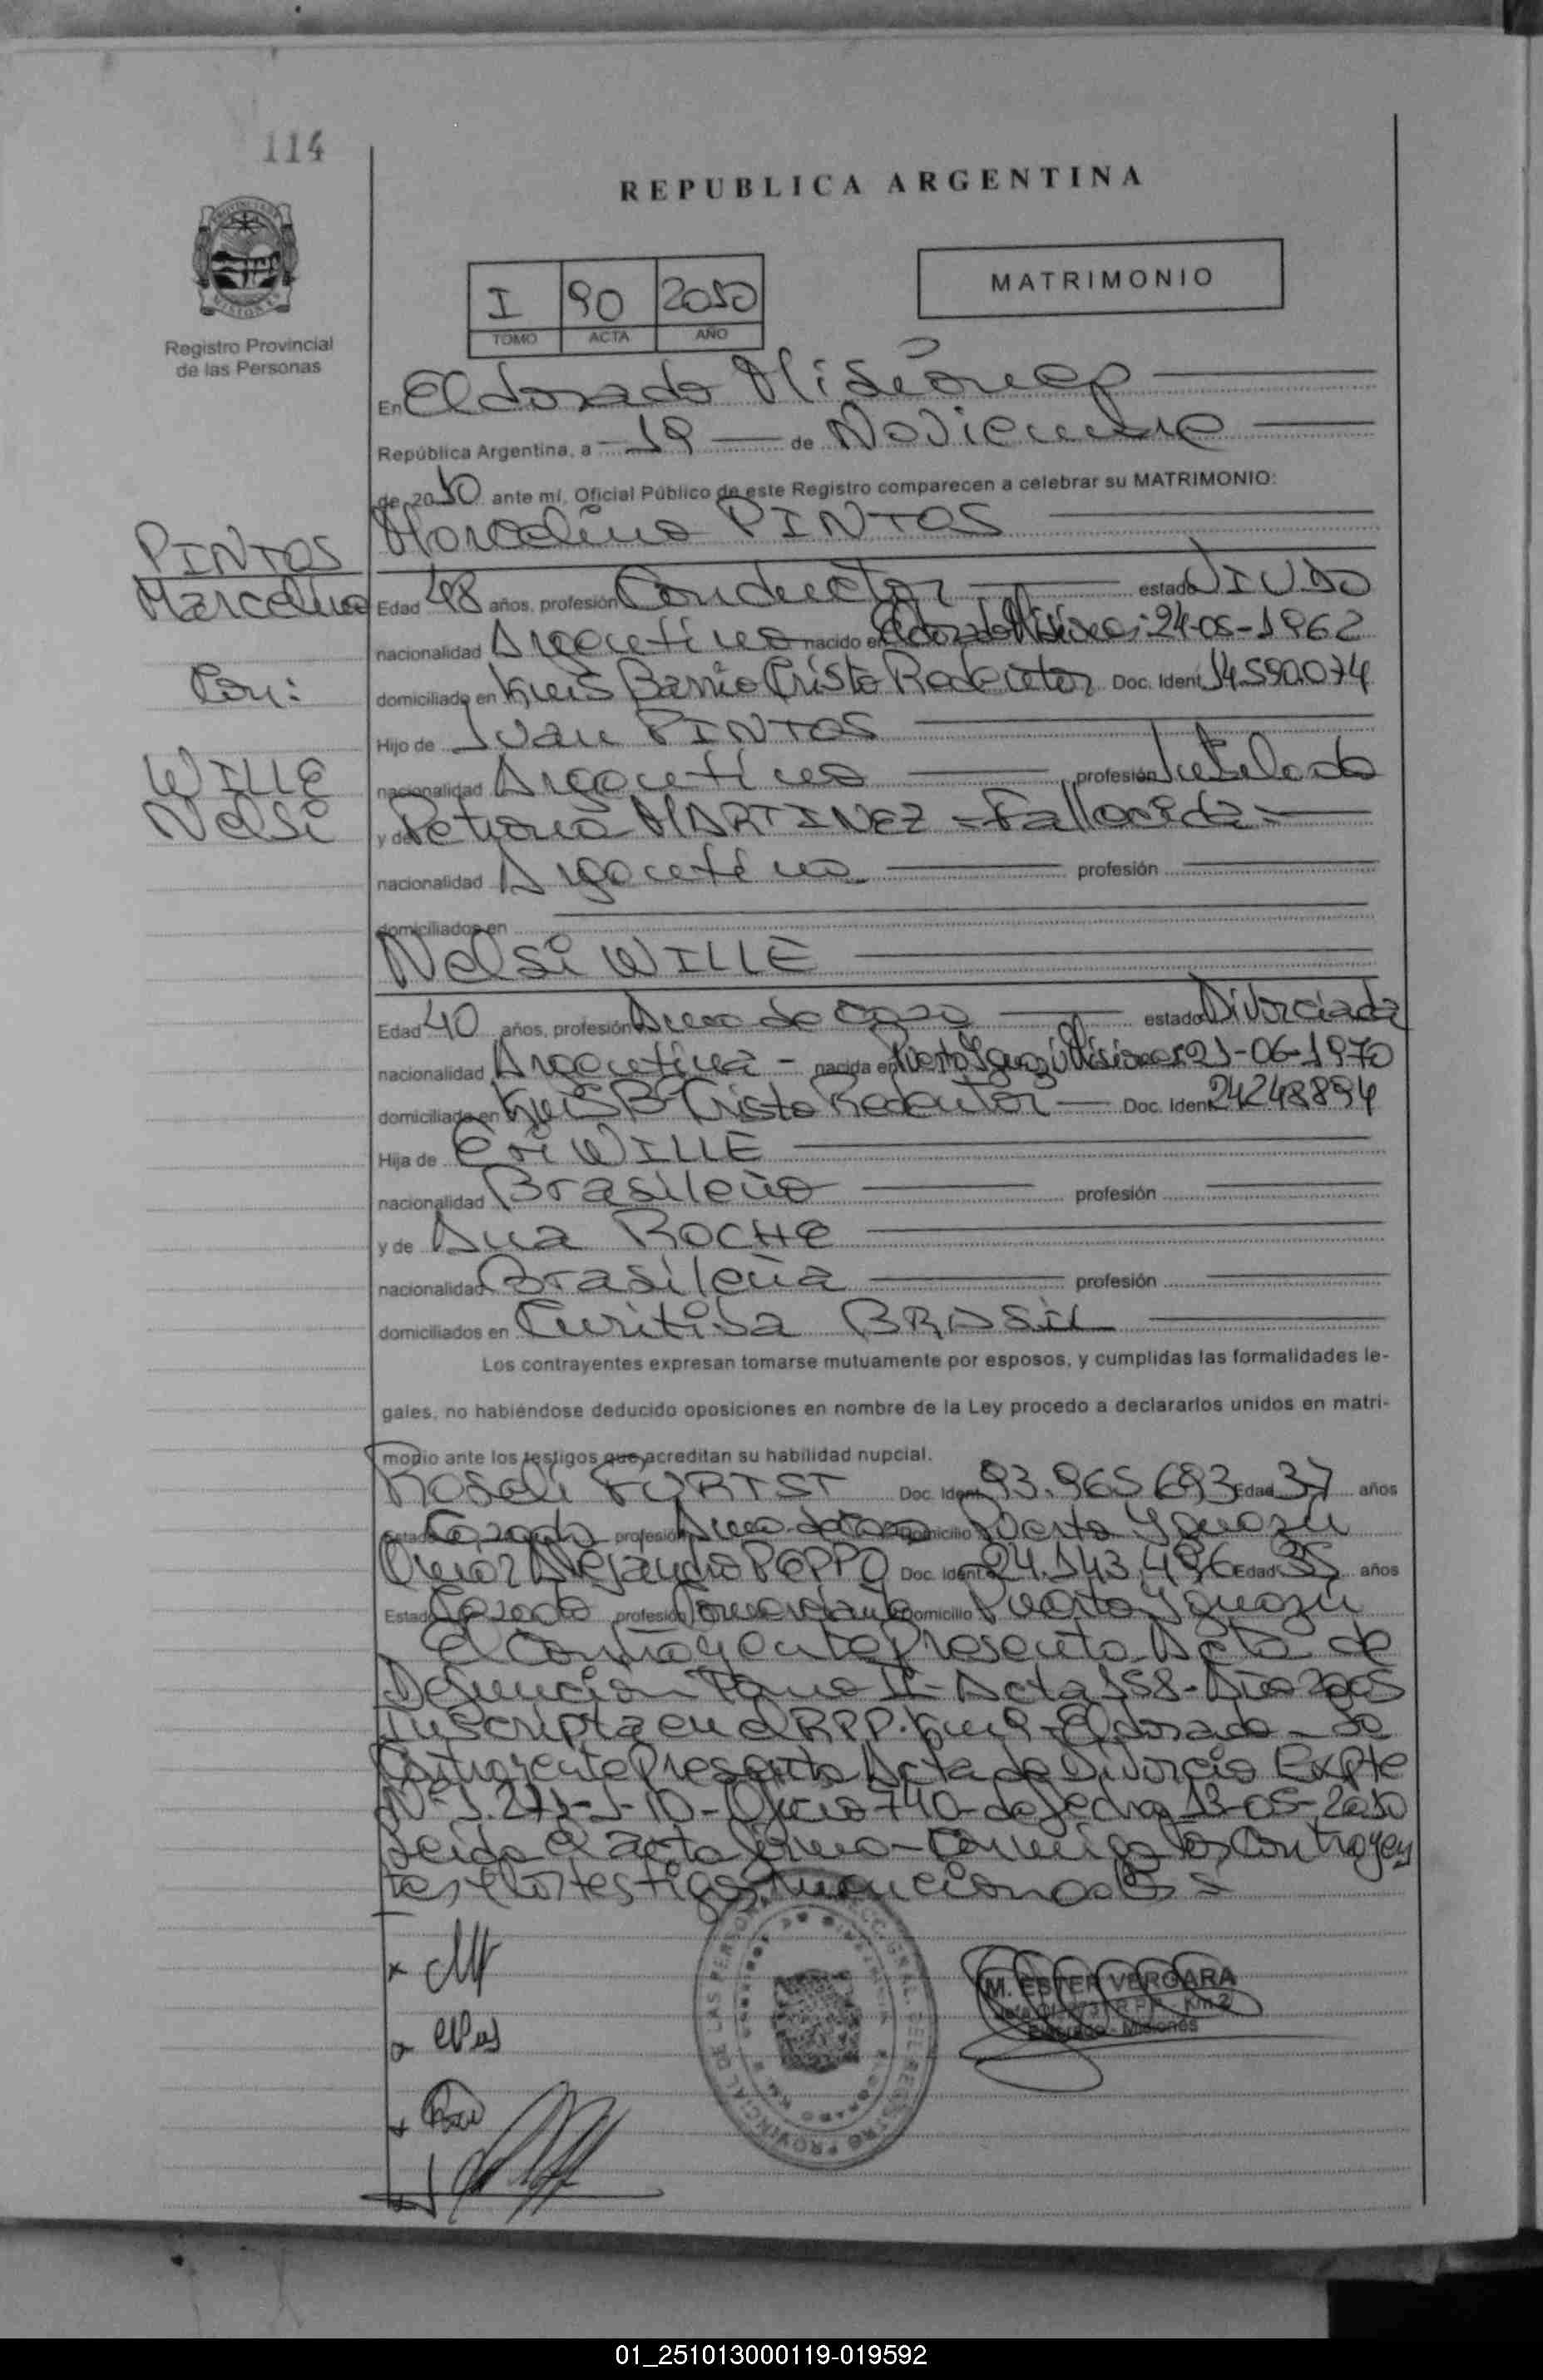 114
REPUBLICA ARGENTINA
MATRIMONIO
I 90 2010
TOMO ACTA AÑO
Registro Provincial
de las Personas
En Eldorado Misiones
República Argentina, a 19 de Noviembre
de 2010 ante mí, Oficial Público de este Registro comparecen a celebrar su MATRIMONIO:
PINTOS
Marcelino
Con:
WILLE
Nelsi
Marcelino PINTOS
Edad 48 años, profesión Conductor estado VIUDO
nacionalidad Argentino nacido en Eldorado Misiones: 24-05-1962
domiciliado en Barrio Cristo Redentor Doc. Ident. 14.590.074
Hijo de Juan PINTOS
nacionalidad Argentino profesión Jubilado
y de Petrona MARTINEZ - Fallecida -
nacionalidad Argentina profesión
domiciliados en
Nelsi WILLE
Edad 40 años, profesión Ama de Casa estado Divorciada
nacionalidad Argentina - nacida en Puerto Iguazú Misiones 21-06-1970
domiciliada en Bº Cristo Redentor Doc. Ident. 24248894
Hija de Eri WILLE
nacionalidad Brasileño profesión
y de Ana ROCHE
nacionalidad Brasileña profesión
domiciliados en Curitiba BRASIL
Los contrayentes expresan tomarse mutuamente por esposos, y cumplidas las formalidades le-
gales, no habiéndose deducido oposiciones en nombre de la Ley procedo a declararlos unidos en matri-
monio ante los testigos que acreditan su habilidad nupcial.
Roseli FURIST Doc. Ident. 93.965.693 Edad 37 años
Estado Casada profesión Ama de Casa Domicilio Puerto Yguazu
Omar Alejandro PEPPO Doc. Ident. 24.143.496 Edad 35 años
Estado Casado profesión Comerciante Domicilio Puerto Yguazu
El Contrayente Presento Acta de
Defuncion Tomo II - Acta 158 - Año 2005
Inscripta en el RPP. Km 9 - Eldorado - La
Contrayente Presento Acta de Divorcio Expte
Nº 1.271-J-10 - Oficio 740 - de fecha 13-05-2010
Leida el acta firma - Conmigo los Contrayen
tes y los testigos mencionados -
M. ESTER VERGARA
R.P.P. Km 2
Eldorado - Misiones
01_251013000119-019592